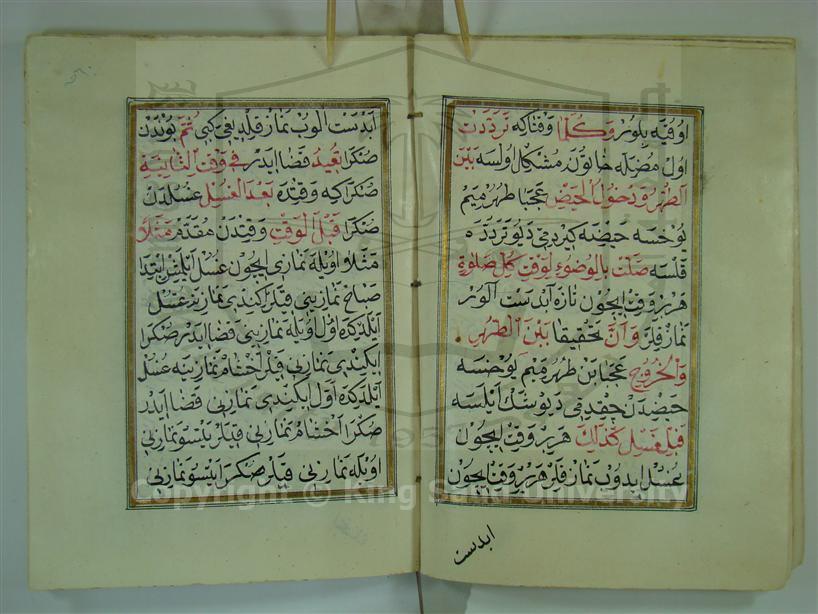 اوقيه بلور وكلما وقتاكه ترددت
اول مضله خاتون مشكل اولسه بين
الطهر ودخول الحيض عجبا طهر ميم
يوخسه حيضه كيردم ديو تردده
قلسه صلت بالوضوء لوقت كل صلوة
هر بر وقت ايچون تازه آبدست آلور
نماز قلر وان تحقيقا بين الطهر
والخروج عجبا بن طهر ميم يوخسه
حيضدن چقدم ديو شك ايلسه
فبغسل كذلك هر بر وقت ايچون
غسل ايدوب نماز قلر هر بر وقت ايچون
ابدست
آبدست الوب نماز قلديغي كبي ثم بوندن
صكرا تعيد قضا ايدر في وقت الثانية
صكراكه وقتده بعد الغسل غسلدن
صكرا قبل الوقت وقتدن مقدم مثلا
مثلا اويله نمازي ايچون غسل ايلمش ابتدا
صباح نمازيني قلر اكندي نمازينه غسل
ايلدكده اول اويله نمازيني قضا ايدر صكرا
ايكيندي نمازني قلر اخشام نمازينه غسل
ايلدكده اول ايكيندي نمازني قضا ايدر
صكرا اخشام نمازني قيلر يتسو نمازني
اويله نمازني قيلر صكرا يتسو نمازني
Copyright © King Saud University
1957